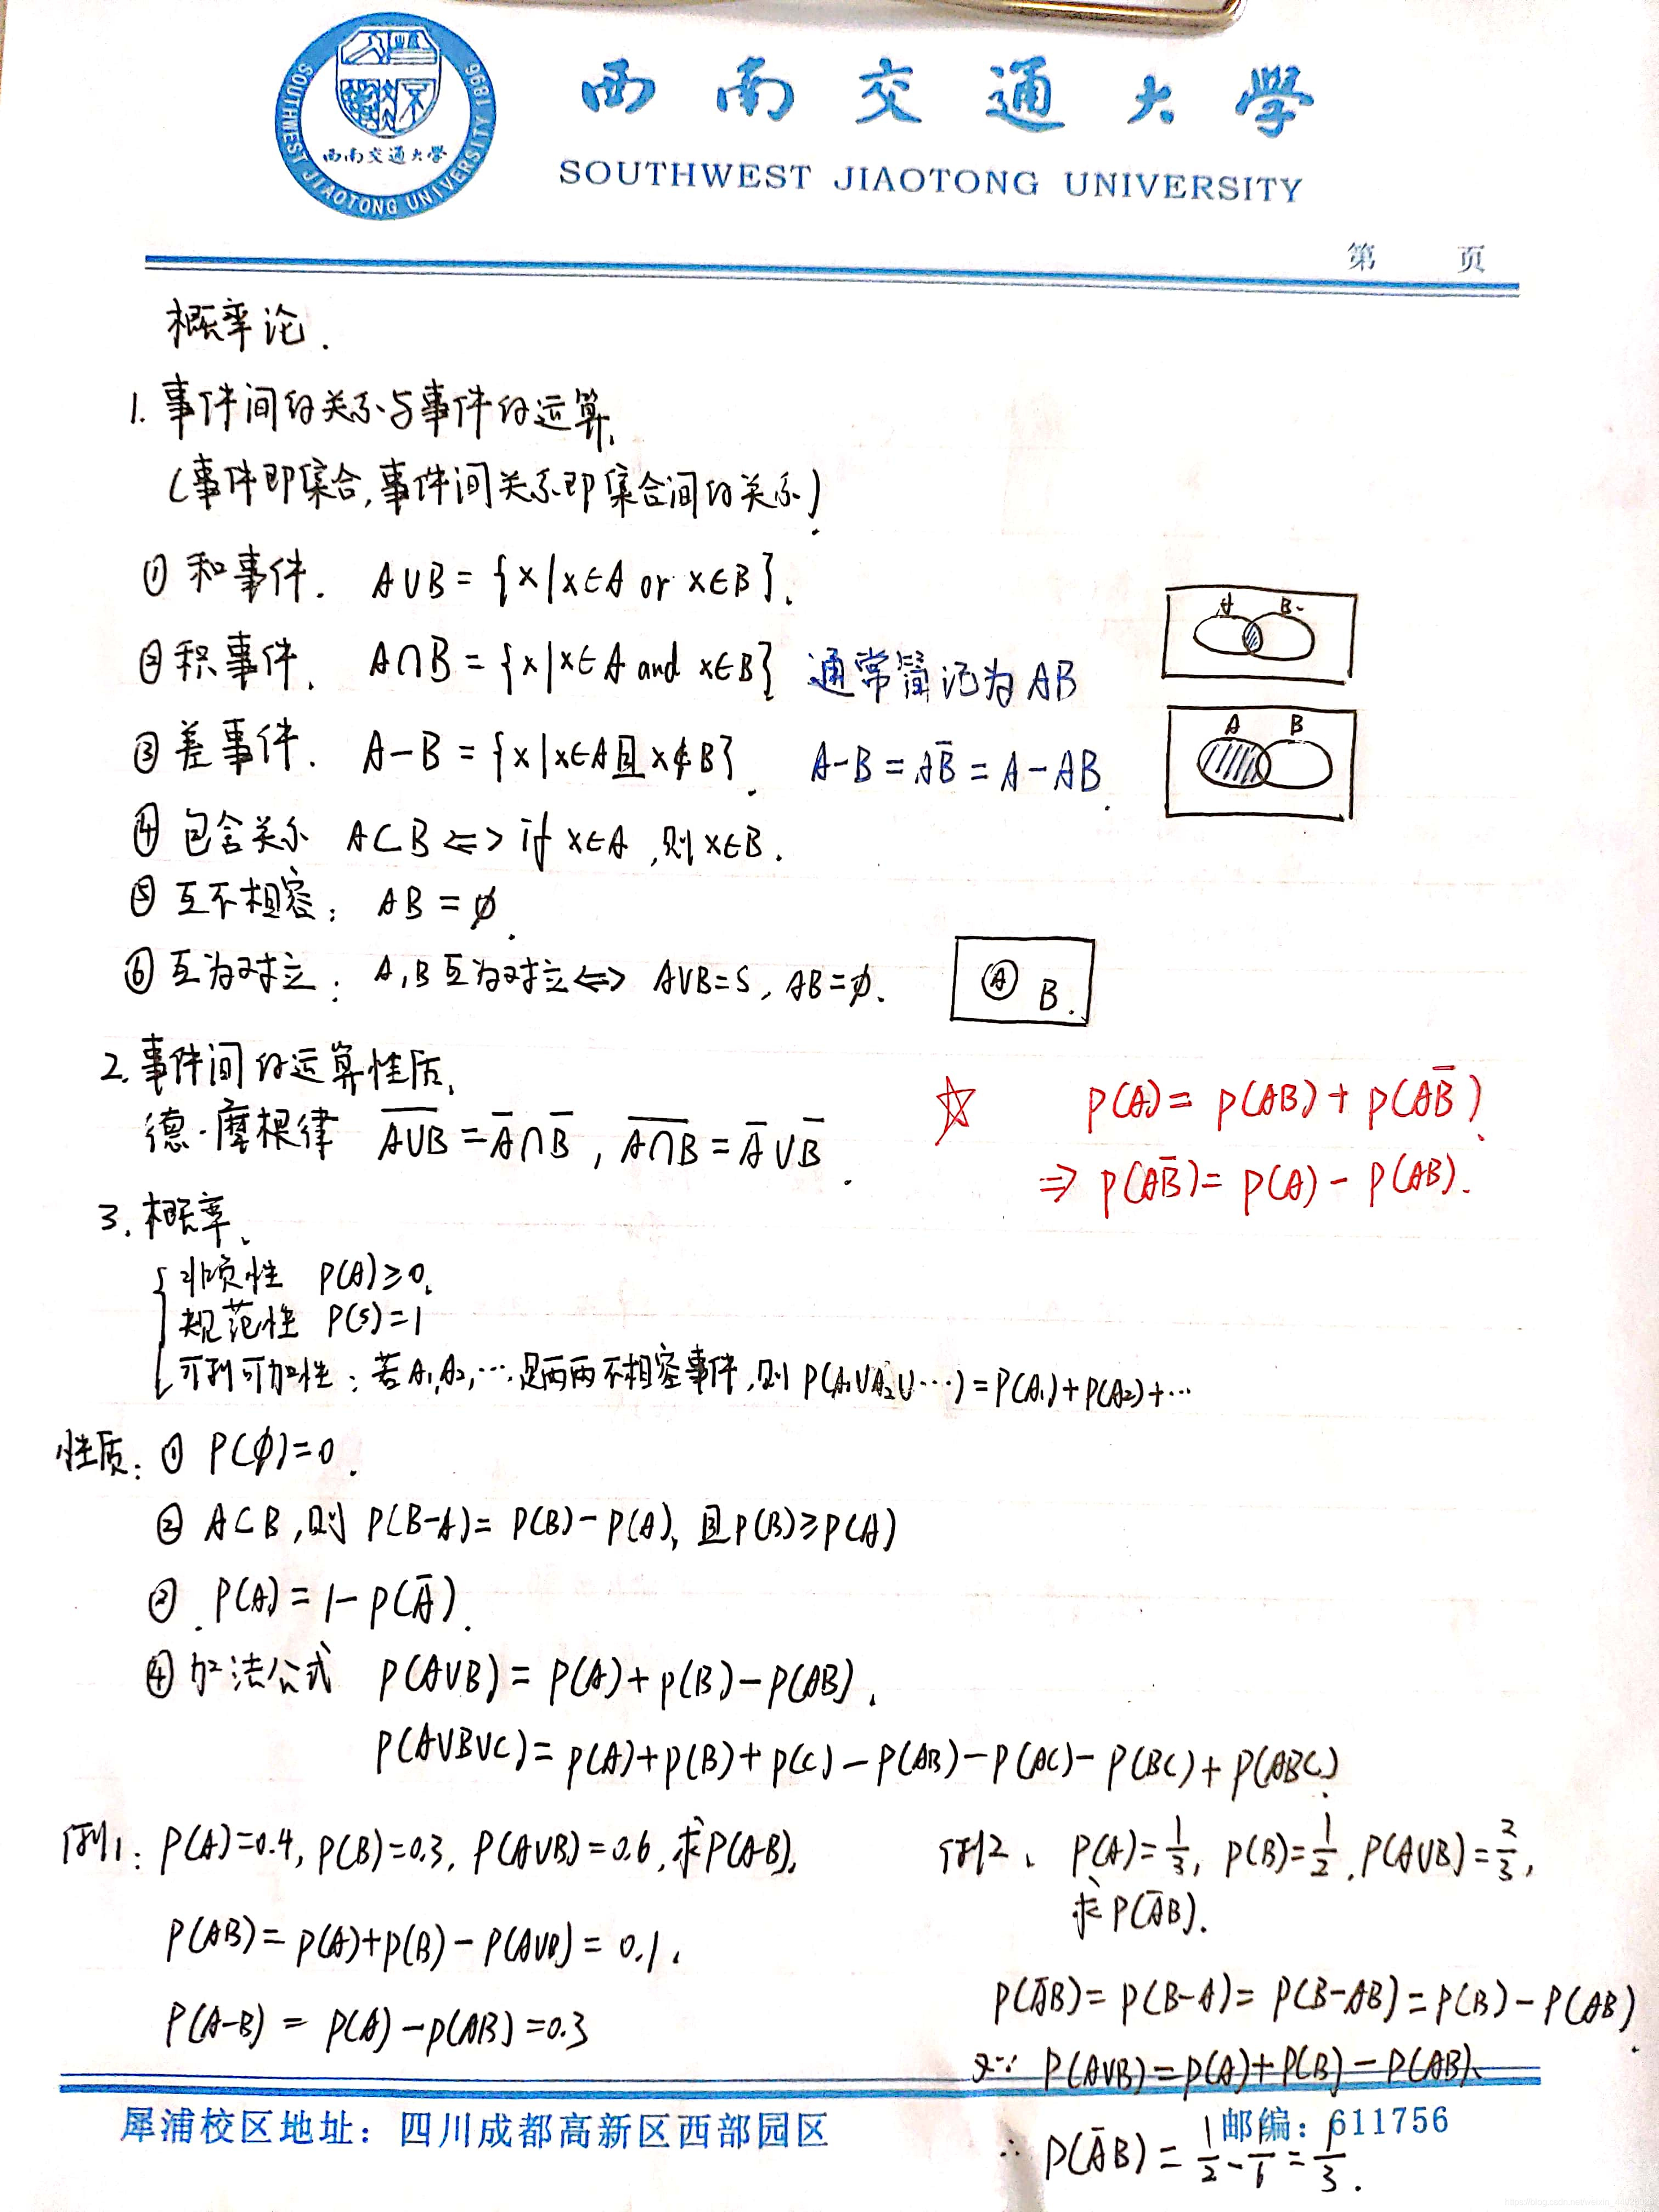 SOUTHWEST JIAOTONG UNIVERSITY 1896
西南交通大学
西南交通大學
SOUTHWEST JIAOTONG UNIVERSITY
第 页
概率论.
1. 事件间的关系与事件的运算.
(事件即集合,事件间关系即集合间的关系).
① 和事件. A∪B = {x|x∈A or x∈B}.
② 积事件. A∩B = {x|x∈A and x∈B} 通常简记为AB
A B
③ 差事件. A-B = {x|x∈A且x∉B}. A-B = AB̅ = A-AB.
A B
④ 包含关系 A⊂B <=> if x∈A,则x∈B.
⑤ 互不相容: AB = ∅.
⑥ 互为对立: A,B互为对立<=> A∪B=S, AB=∅.
A B.
2. 事件间的运算性质.
德·摩根律 \overline{A∪B} = A̅∩B̅, \overline{A∩B} = A̅∪B̅.
☆ P(A) = P(AB) + P(AB̅).
⇒ P(AB̅) = P(A) - P(AB).
3. 概率.
非负性 P(A)≥0.
规范性 P(S)=1
可列可加性: 若A₁,A₂,…是两两不相容事件,则P(A₁∪A₂∪…)=P(A₁)+P(A₂)+…
性质: ① P(∅)=0.
② A⊂B,则 P(B-A)= P(B)-P(A), 且P(B)≥P(A)
③. P(A) = 1-P(A̅).
④ 加法公式 P(A∪B) = P(A)+P(B)-P(AB).
P(A∪B∪C)= P(A)+P(B)+P(C)-P(AB)-P(AC)-P(BC)+P(ABC).
例1: P(A)=0.4, P(B)=0.3, P(A∪B)=0.6,求P(A-B).
P(AB) = P(A)+P(B)-P(A∪B) = 0.1.
P(A-B) = P(A)-P(AB)=0.3
例2、 P(A)=1/3, P(B)=1/2, P(A∪B)=2/3,
求P(A̅B).
P(A̅B) = P(B-A) = P(B-AB) = P(B)-P(AB).
又∵ P(A∪B)=P(A)+P(B)-P(AB).
∴ P(A̅B) = 1/2-1/6=1/3.
犀浦校区地址: 四川成都高新区西部园区 邮编: 611756